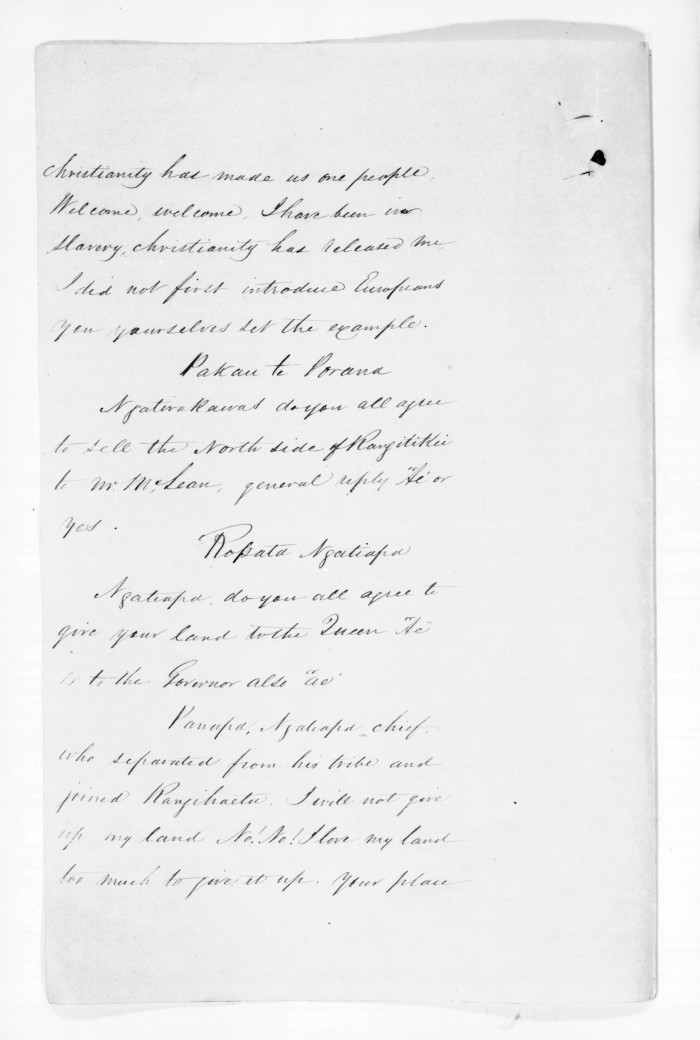 Christianity has made us one people.
Welcome, welcome, I have been in
slavery, christianity has released me,
I did not first introduce Europeans
you yourselves set the example.
Pakau te Porana
Ngatirakawas do you all agree
to sell the North side of Rangitikei
to Mr. McLean, general reply "Ae" or
yes.
Ropata Ngatiapa
Ngatiapa, do you all agree to
give your land to the Queen "Ae"
to the Governor also "ae"
Panapa, Ngatiapa chief.
who separated from his tribe and
joined Rangihaeta. I will not give
up my land No! No! I love my land
too much to give it up. Your place